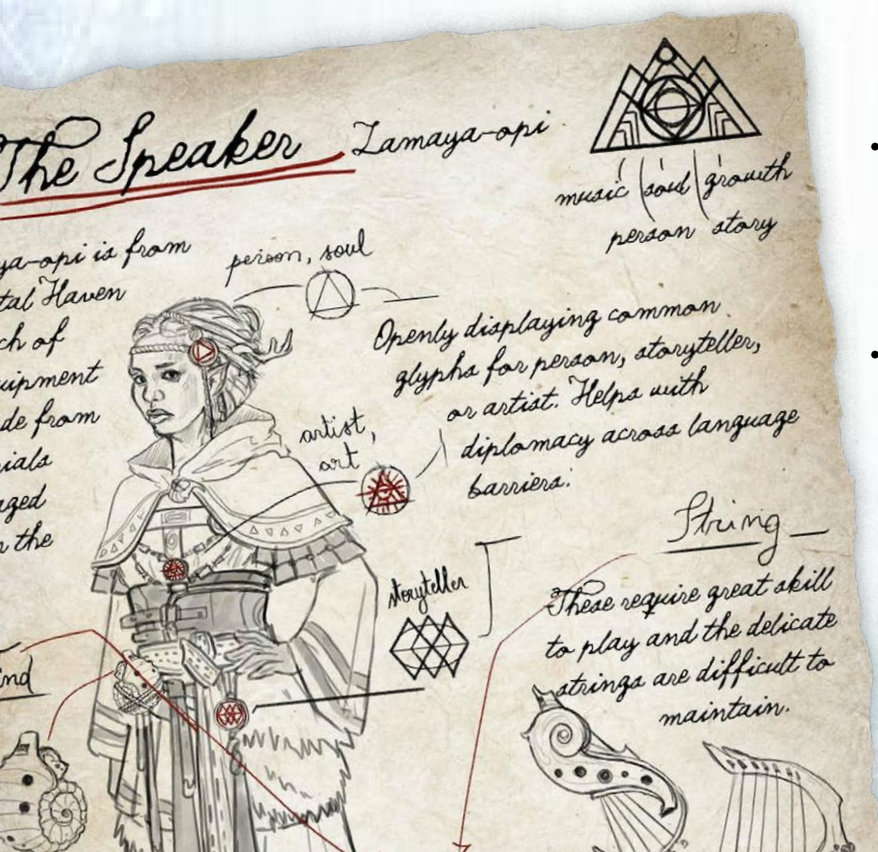 The Speaker Zamaya-opi
music soul growth
person story
ya-opi is from
tal Haven
ch of
uipment
de from
ials
aged
n the
person, soul
Openly displaying common
glyphs for person, storyteller,
or artist. Helps with
diplomacy across language
barriers.
artist,
art
storyteller
String
These require great skill
to play and the delicate
strings are difficult to
maintain.
ind